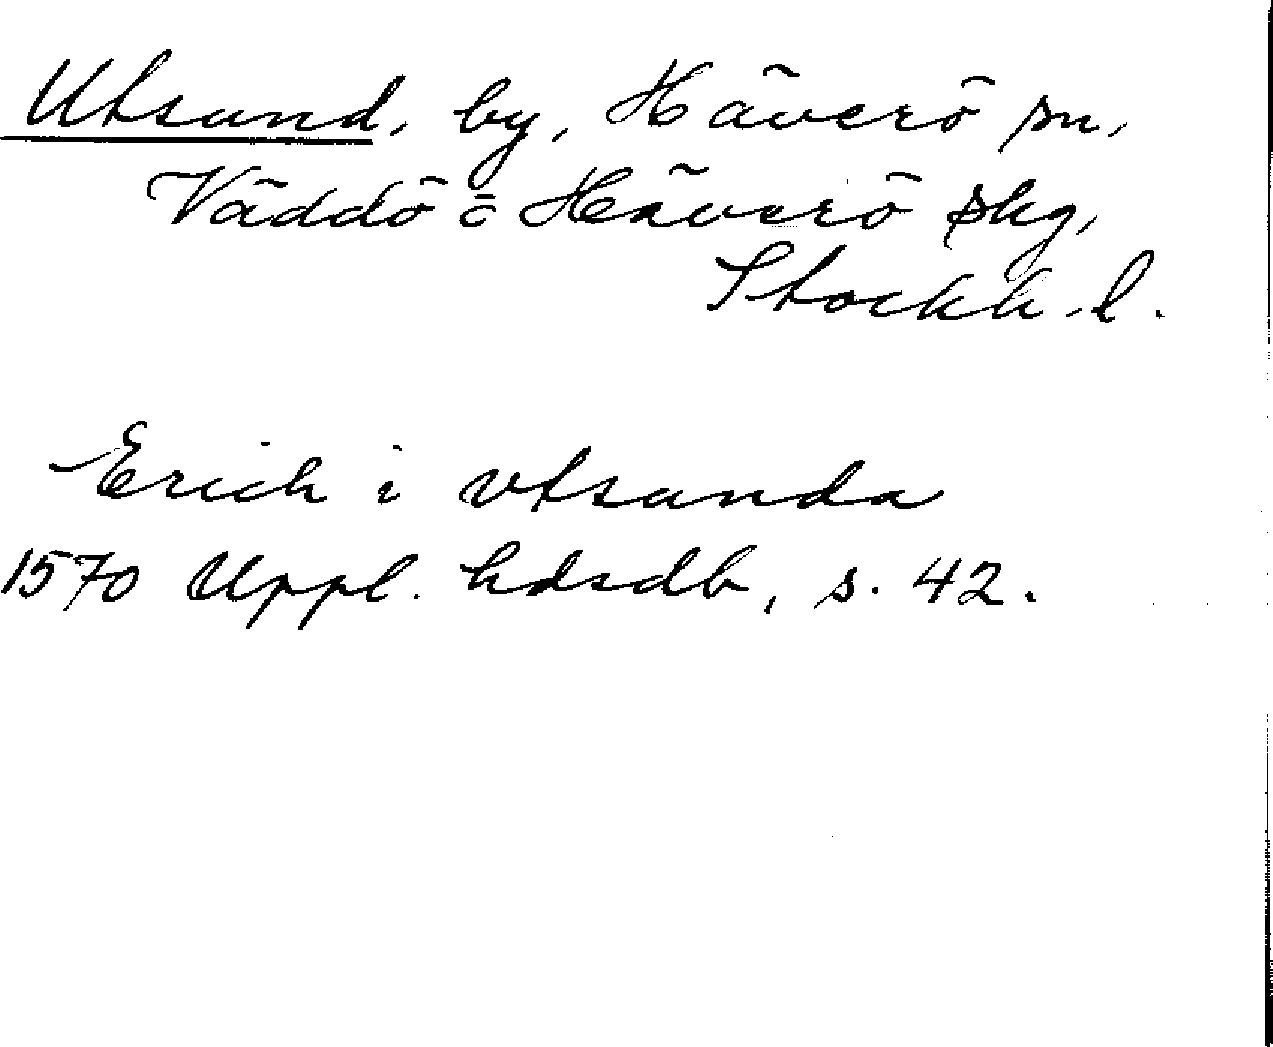 Utsund, by, Häverö sn,
Väddö o Häverö skg,
Stockh. l.
Erich i vtsunda
1570 Uppl. hdsdb, s. 42.